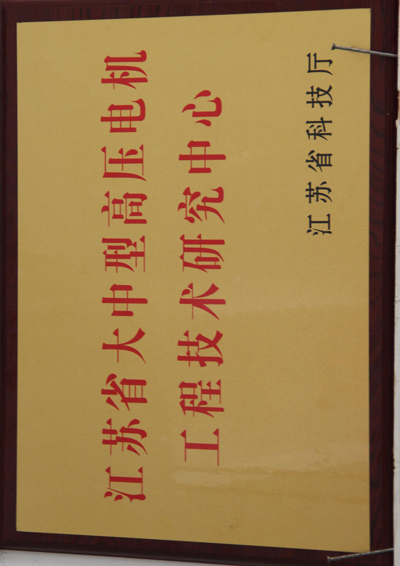 江苏省大中型高压电机
工程技术研究中心
江苏省科技厅